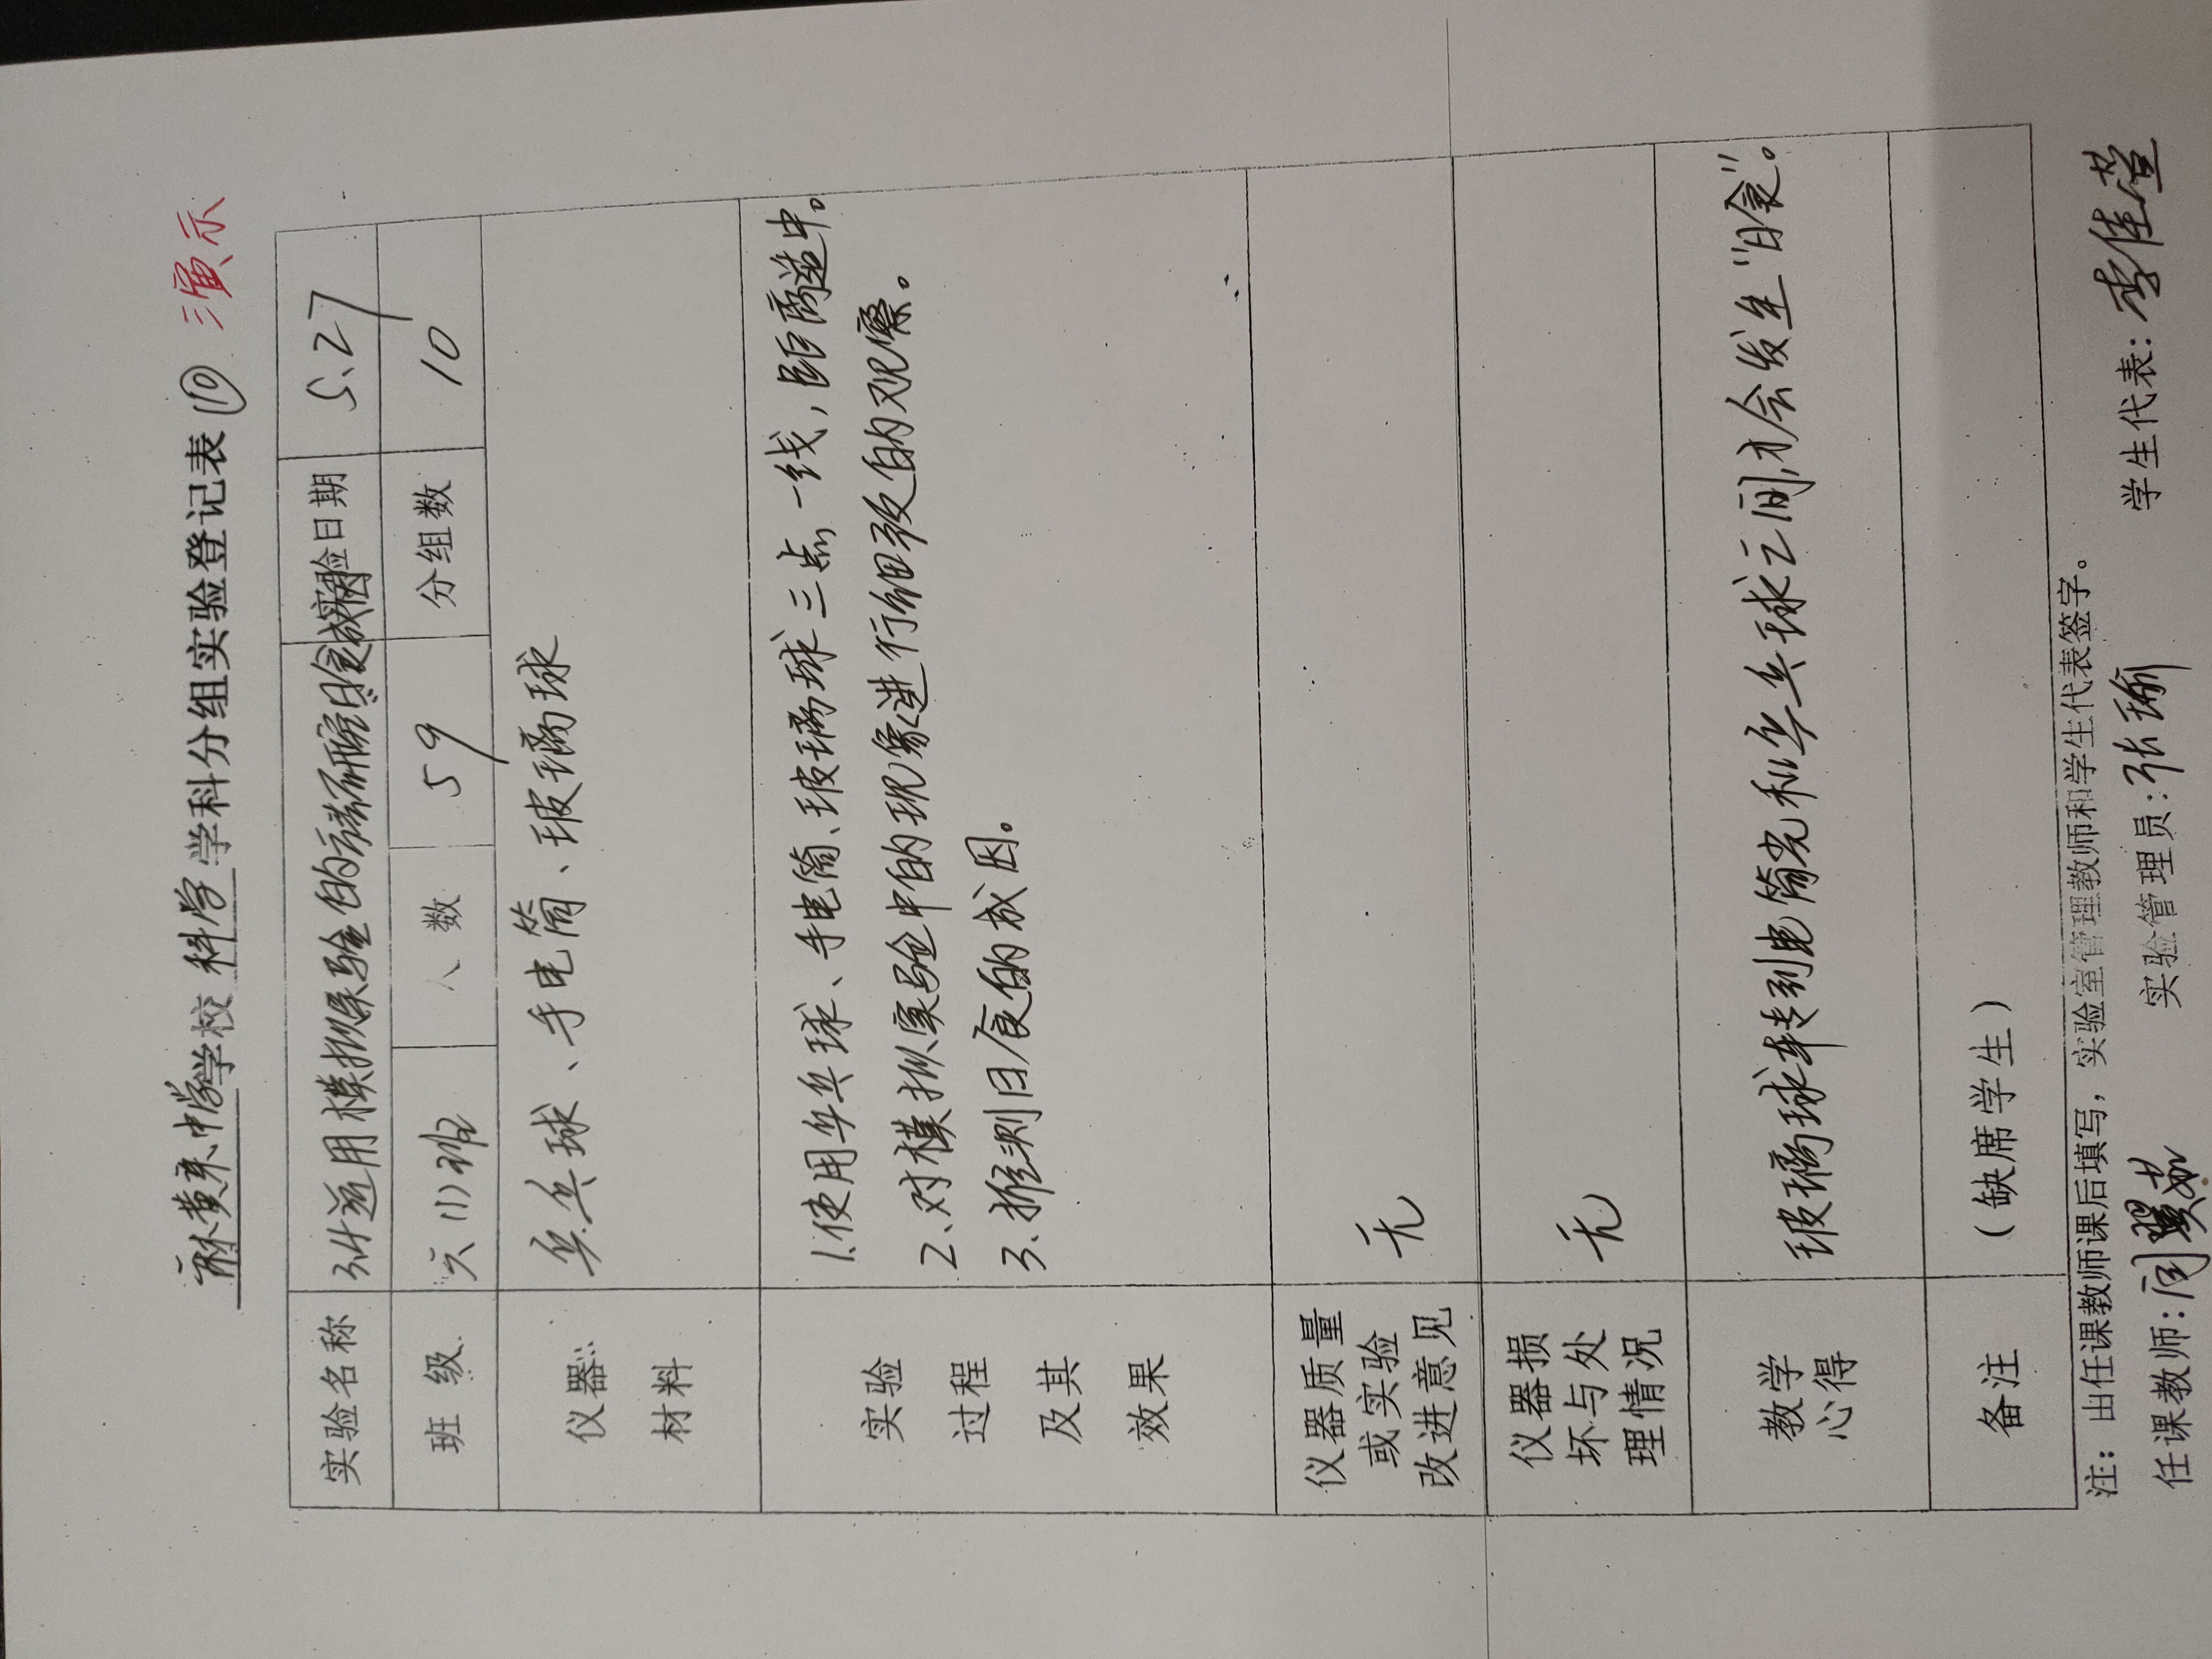 麻黄来中学学校 科学 学科分组实验登记表⑩ 演示
实验名称 3.4运用模拟实验的方法研究日食成因 实验日期 5.27
班级 六(1)班 人数 59 分组数 10
仪器材料 乒乓球、手电筒、玻璃球
实验过程及其效果
1.使用乒乓球、手电筒、玻璃球三点一线,距离适中。
2.对模拟实验中的现象进行细致的观察。
3.推测日食的成因。
仪器质量或实验改进意见 无
仪器损坏与处理情况 无
教学心得 玻璃球转到电筒光和乒乓球之间,才会发生"日食"。
备注 (缺席学生)
注:由任课教师课后填写,实验室管理教师和学生代表签字。
任课教师:周 实验管理员:张瑜 学生代表:李佳莹